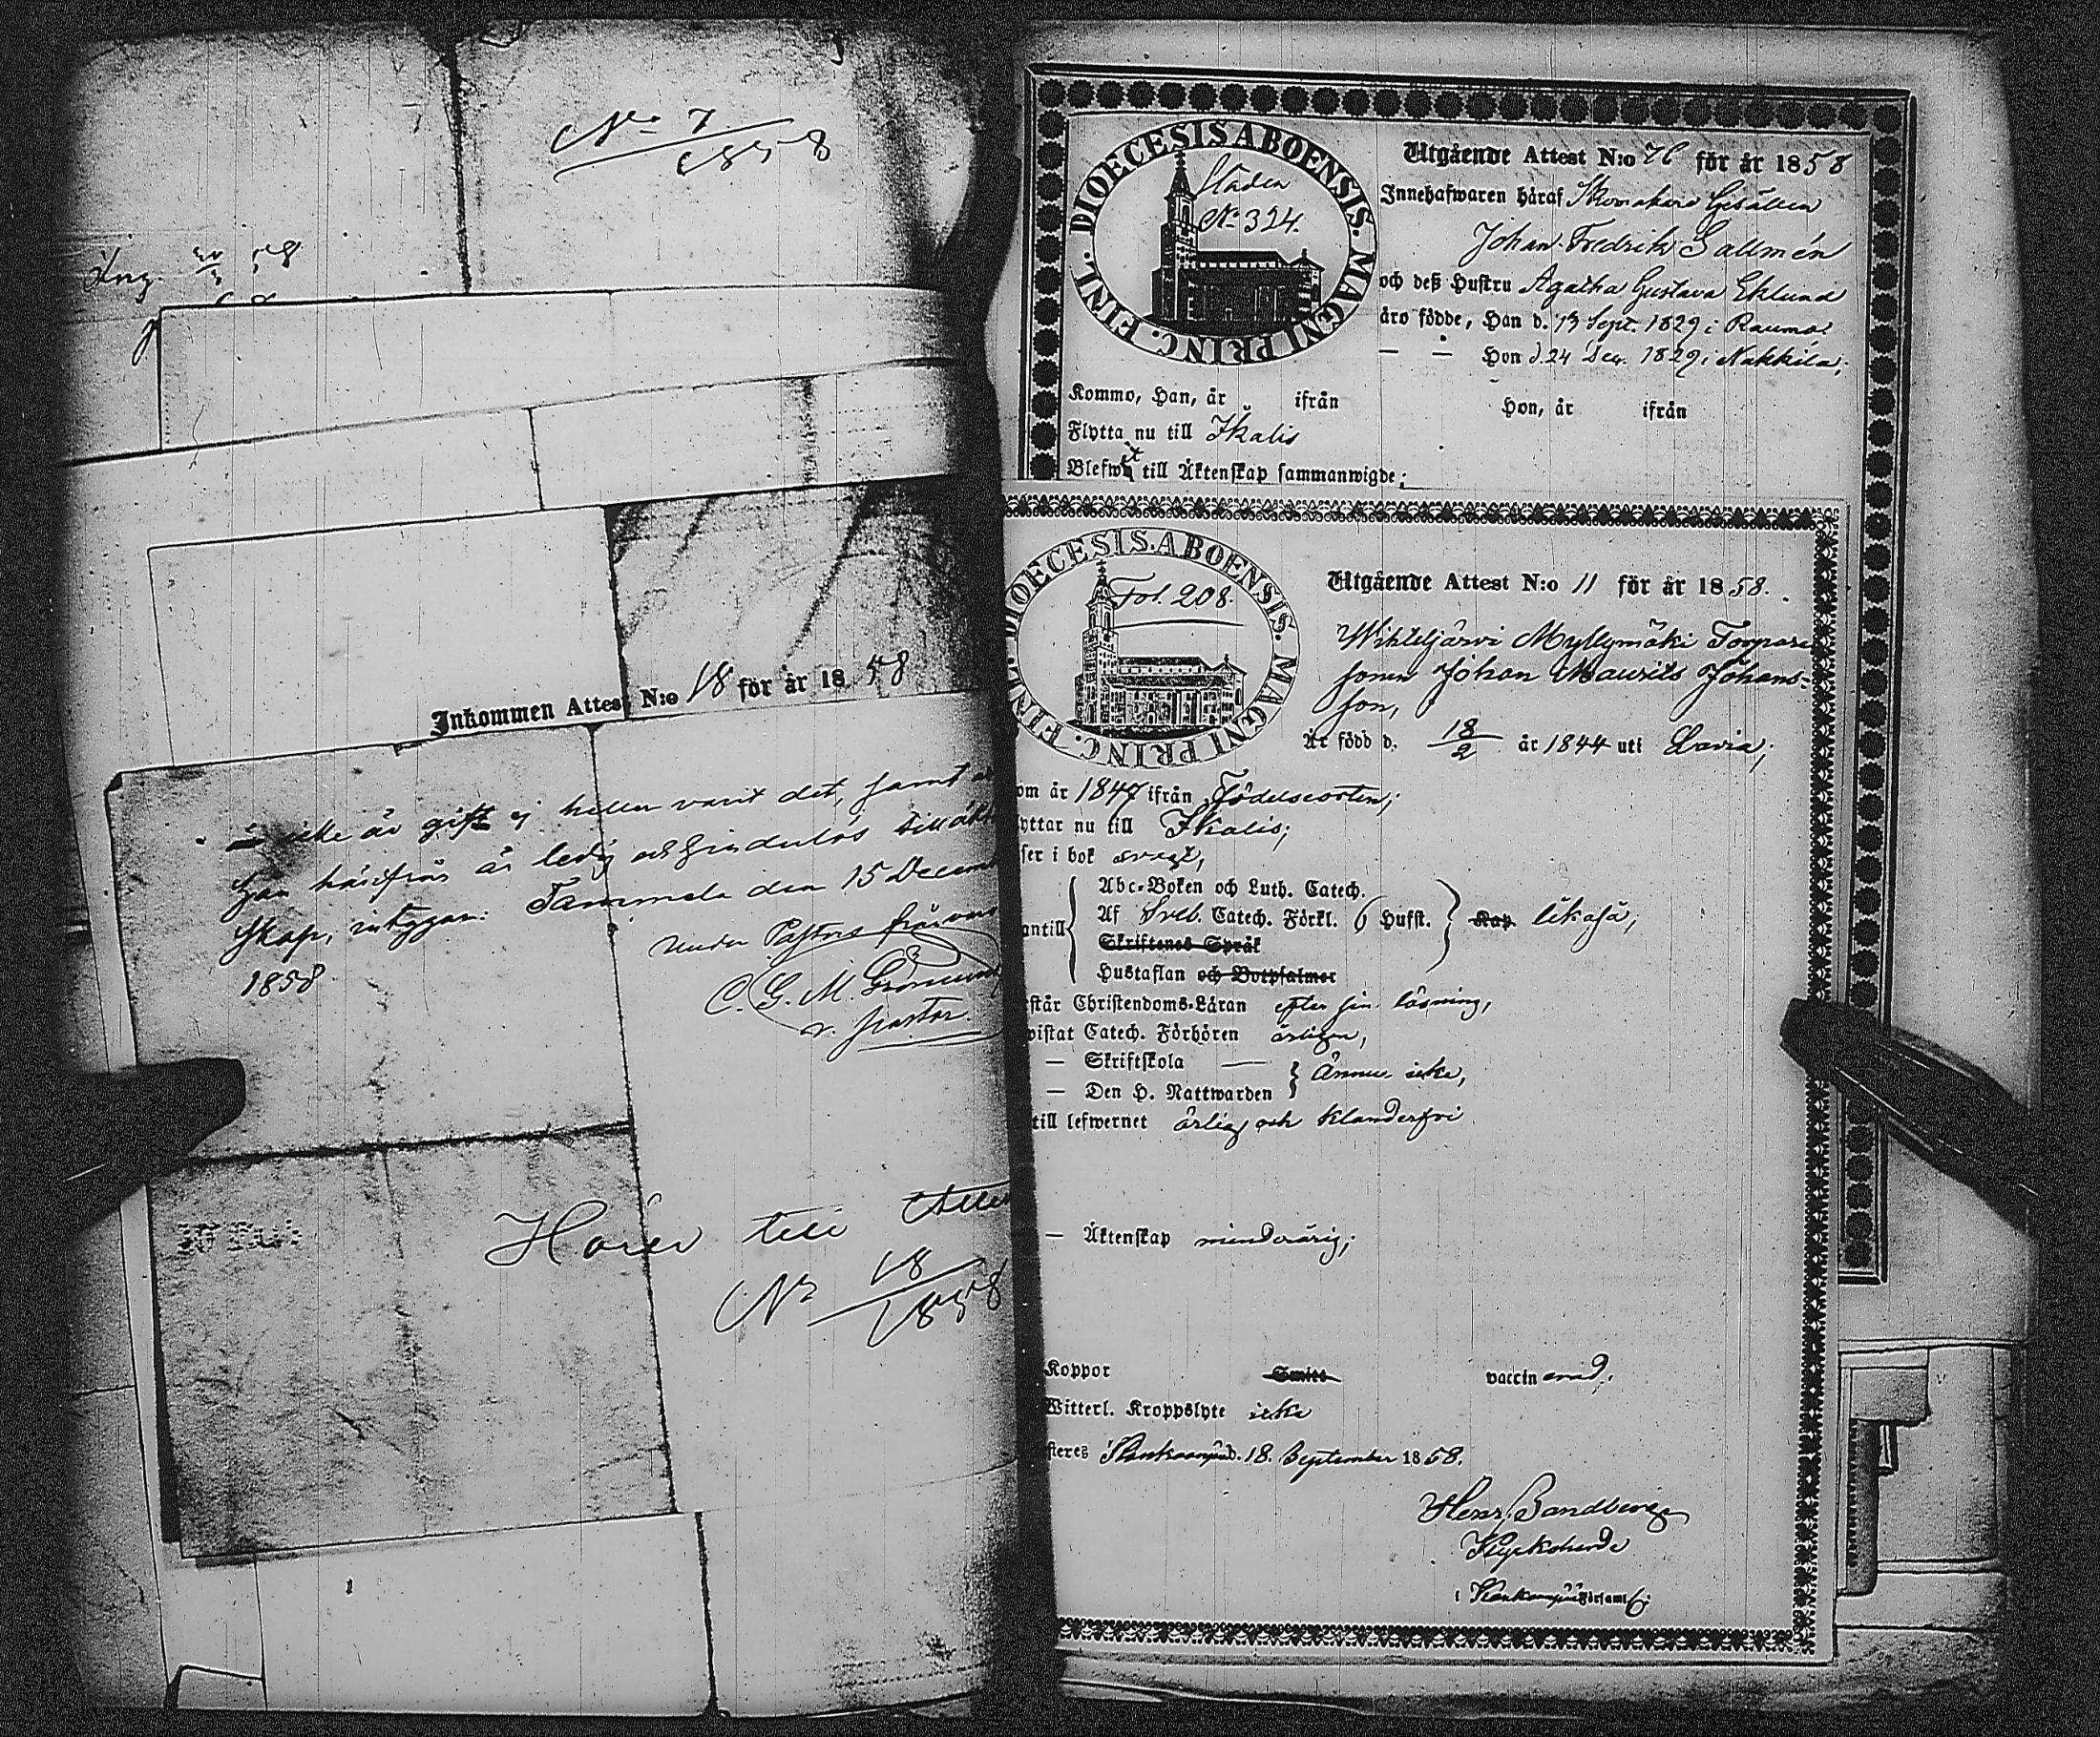 No 7
1858
Ing. 20/3 58
Inkommen Attest N:o 18 för år 1858
icke är gift ej heller varit det, samt
han härifrån är ledig och hinderlös till äkten
skap, intygar: Tammela den 15 Decem
1858.
under Pastors frånvaro
C. G. M. Grönlund
v. pastor.
Hörer till Attest
No 18
1858
DIOECESIS ABOENSIS. MAGNI PRINC. FINL.
Staden
No 324.
Utgående Attest N:o 76 för år 1858
Innehafwaren häraf Skomakare Gesällen
Johan Fredrik Sallmén
och deß Hustru Agatha Gustava Eklund
äro födde, Han d. 13 Sept. 1829 i Raumo;
— — Hon d. 24 Dec. 1829 i Nakkila;
Kommo, Han, år ifrån Hon, år ifrån
Flytta nu till Ikalis
Blefwit till Äktenskap sammanwigde;
DIOECESIS ABOENSIS. MAGNI PRINC. FINL.
Fol. 208.
Utgående Attest N:o 11 för år 1858.
Wihteljärvi Myllymäki Torpare
sonen Johan Mauritz Johans-
son,
Är född d. 18/2 år 1844 uti Lavia;
om år 1847 ifrån Födelseorten;
yttar nu till Ikalis;
ser i bok svagt,
antill
Abc-Boken och Luth. Catech.
Af Sveb. Catech. Förkl. 6 Hufst. Kap. likaså;
Skriftenes Språk
Hustaflan och Botpsalmer
står Christendoms-Läran efter sin läsning,
vistat Catech. Förhören årligen,
— Skriftskola —
— Den H. Nattwarden Ännu icke,
till lefwernet ärlig och klanderfri
— Äktenskap minderårig;
Koppor Smitt vaccinerad.
Witterl. Kroppslyte icke
steres Kankaanpää d. 18. September 1858.
Henr. Sandberg
Kyrkoherde
i Kankaanpää Församl.